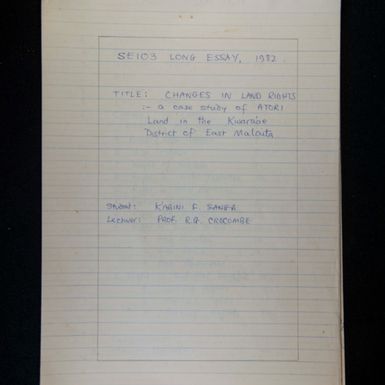 SE103 LONG ESSAY, 1982.
TITLE: CHANGES IN LAND RIGHTS
:- a case study of ATORI
Land in the Kwara'ae
District of East Malaita
Student: KABINI F. SANGA
Lecturer: PROF. R.G. CROCOMBE